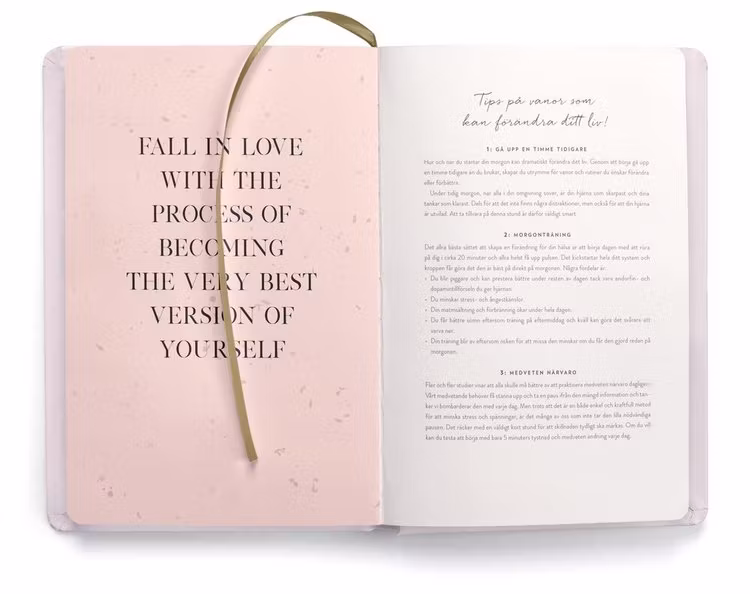 FALL IN LOVE
WITH THE
PROCESS OF
BECOMING
THE VERY BEST
VERSION OF
YOURSELF
Tips på vanor som
kan förändra ditt liv!
1: GÅ UPP EN TIMME TIDIGARE
Hur och när du startar din morgon kan dramatiskt förändra ditt liv. Genom att börja gå upp
en timme tidigare än du brukar, skapar du utrymme för vanor och rutiner du önskar förändra
eller förbättra.
Under tidig morgon, när alla i din omgivning sover, är din hjärna som skarpast och dina
tankar som klarast. Dels för att det inte finns några distraktioner, men också för att din hjärna
är utvilad. Att ta tillvara på denna stund är därför väldigt smart.
2: MORGONTRÄNING
Det allra bästa sättet att skapa en förändring för din hälsa är att börja dagen med att röra
på dig i cirka 20 minuter och allra helst få upp pulsen. Det kickstartar hela ditt system och
kroppen får göra det den är bäst på direkt på morgonen. Några fördelar är:
- Du blir piggare och kan prestera bättre under resten av dagen tack vare endorfin- och
dopamintillförseln du ger hjärnan.
- Du minskar stress- och ångestkänslor.
- Din matsmältning och förbränning ökar under hela dagen.
- Du får bättre sömn eftersom träning på eftermiddag och kväll kan göra det svårare att
varva ner.
- Din träning blir av eftersom risken för att missa den minskar om du får den gjord redan på
morgonen.
3: MEDVETEN NÄRVARO
Fler och fler studier visar att alla skulle må bättre av att praktisera medveten närvaro dagligen.
Vårt medvetande behöver få stanna upp och ta en paus från den mängd information och tan-
ker vi bombarderar den med varje dag. Men trots att det är en både enkel och kraftfull metod
för att minska stress och spänningar, är det många av oss som inte tar den lilla nödvändiga
pausen. Det räcker med en väldigt kort stund för att skillnaden tydligt ska märkas. Om du vill
kan du testa att börja med bara 5 minuters tystnad och medveten andning varje dag.